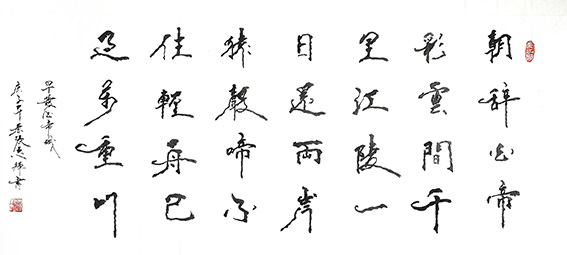 朝辭白帝
彩雲間千
里江陵一
日還兩岸
猿聲啼不
住輕舟已
過萬重山
早發白帝城
庚子年 書